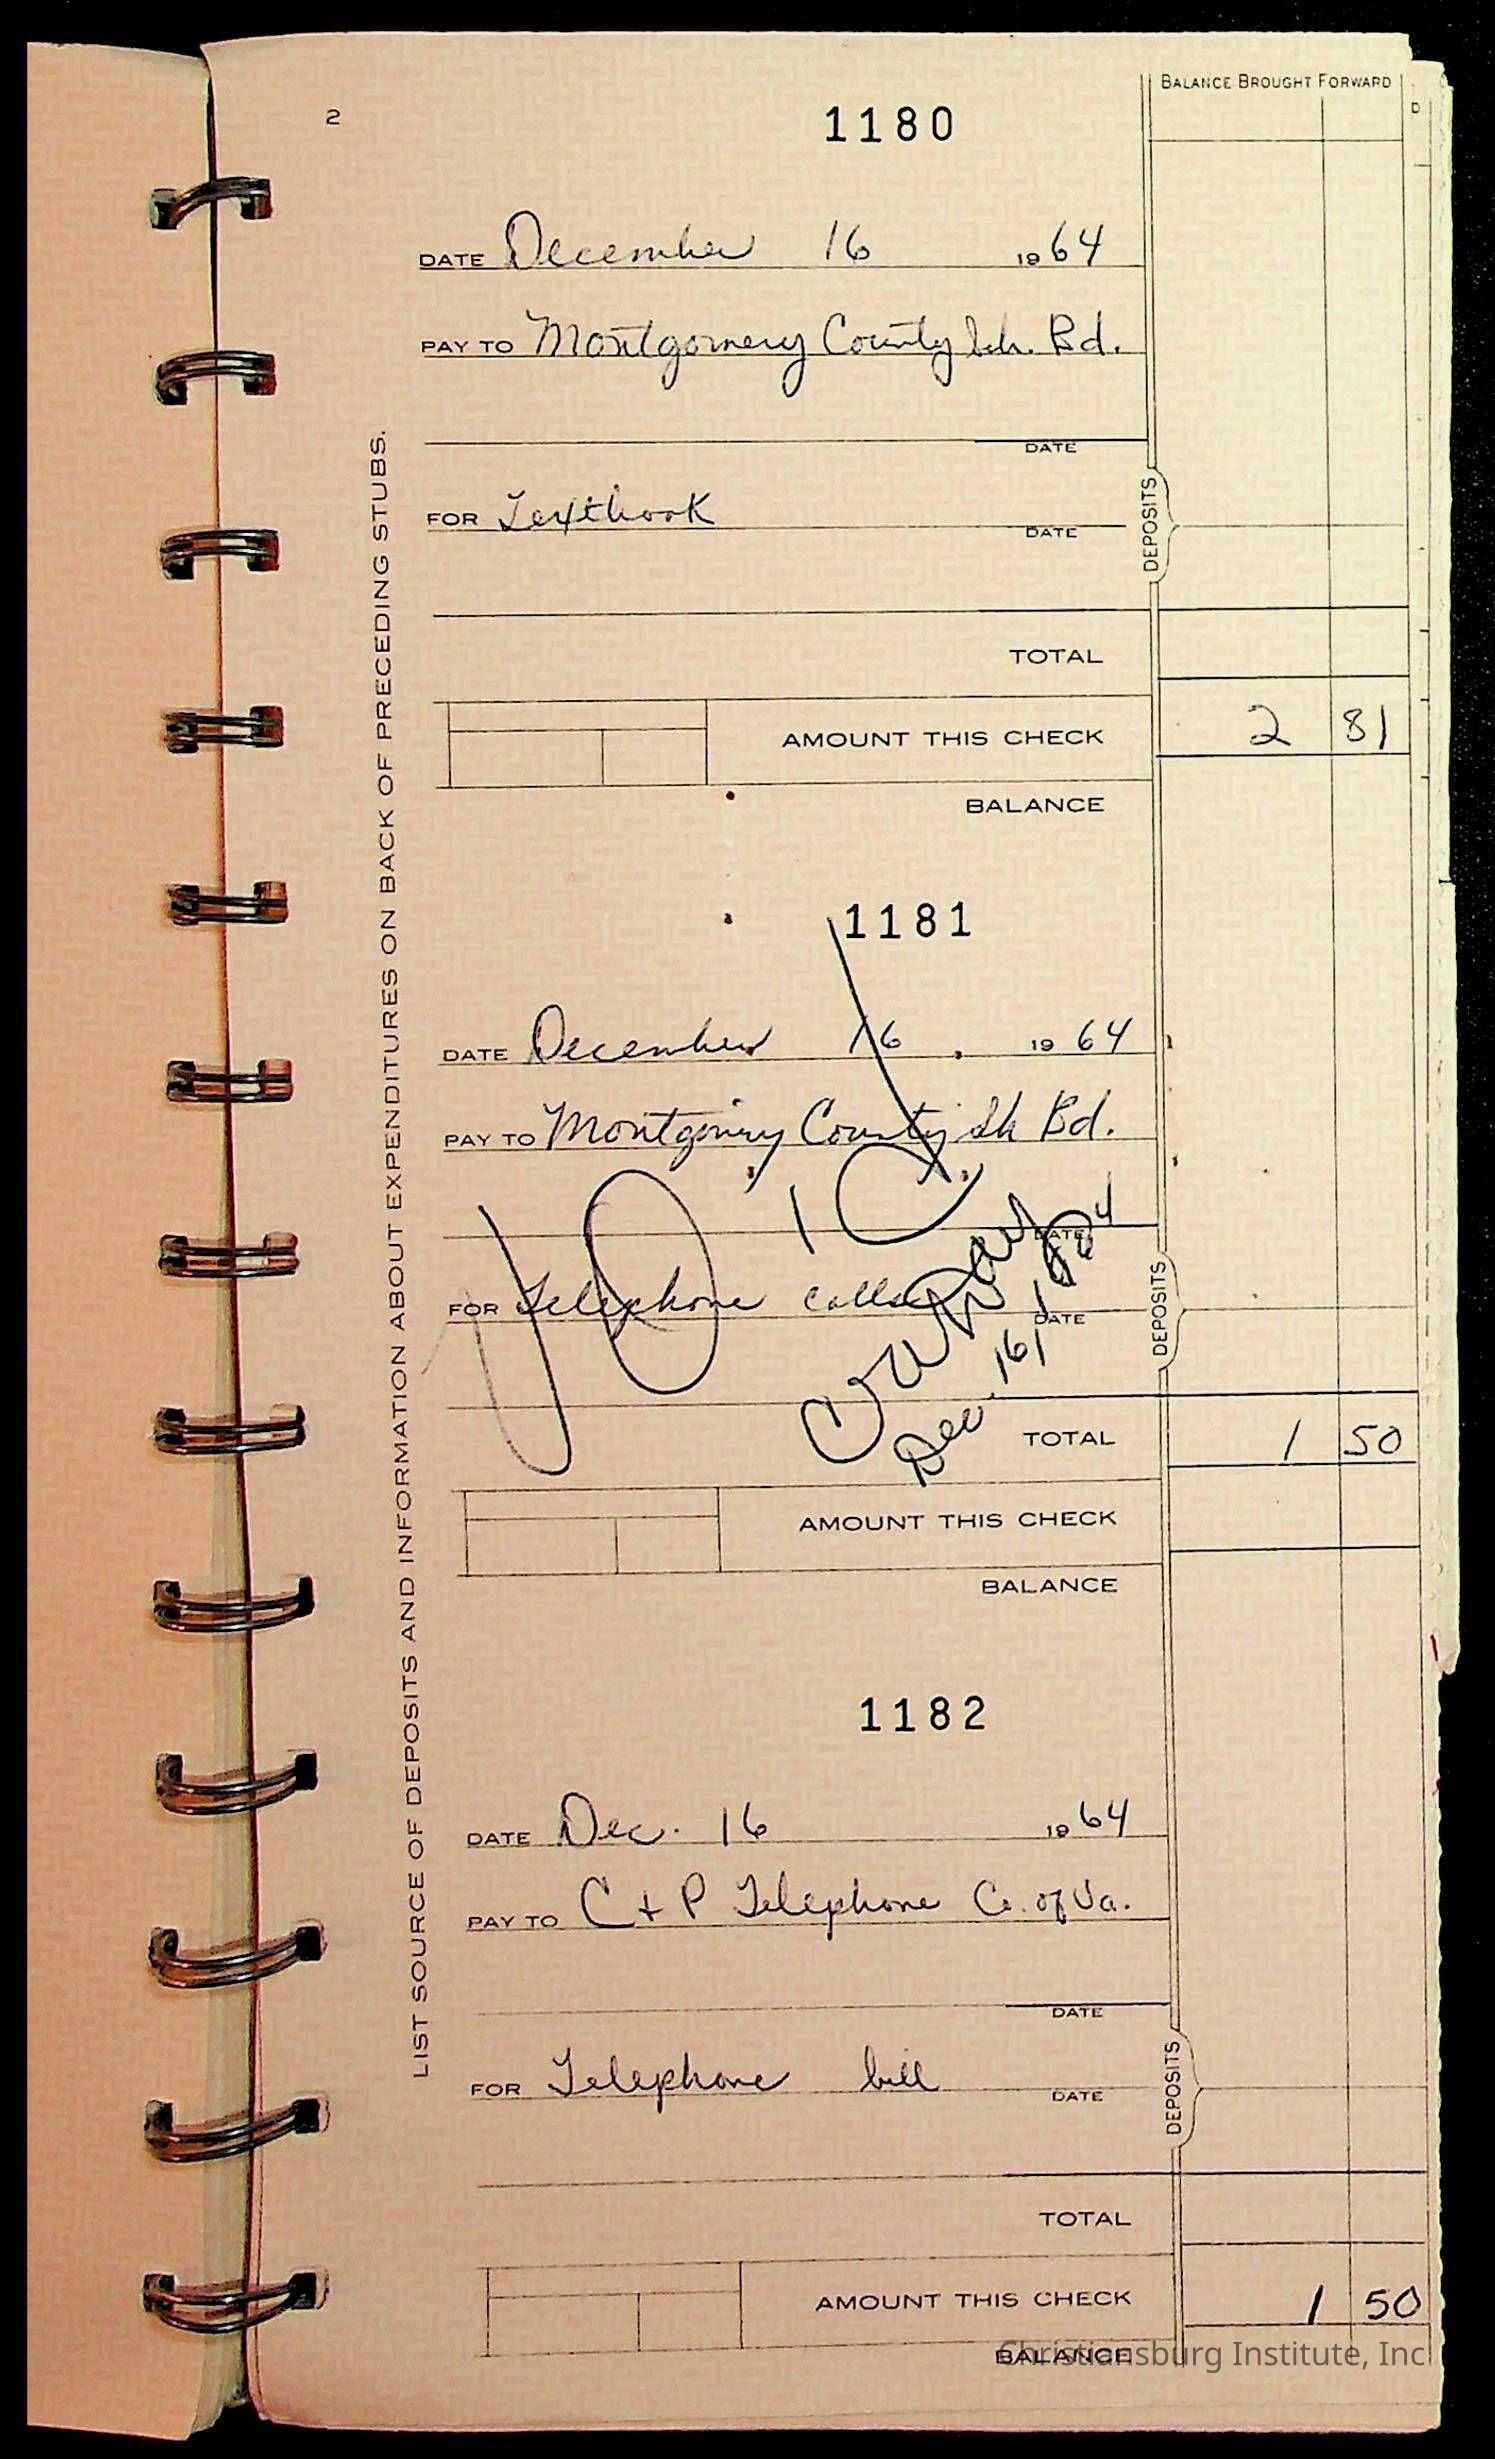 BALANCE BROUGHT FORWARD
D
2
1180
DATE December 16 1964
PAY TO Montgomery County Sch. Bd.
DATE
FOR Textbook
DATE
DEPOSITS
TOTAL
AMOUNT THIS CHECK 2 81
BALANCE
LIST SOURCE OF DEPOSITS AND INFORMATION ABOUT EXPENDITURES ON BACK OF PRECEDING STUBS.
1181
DATE December 16 1964
PAY TO Montgomery County Sch Bd.
DATE
FOR Telephone calls
DATE
DEPOSITS
VOID
Dec 16, 1964
TOTAL 1 50
AMOUNT THIS CHECK
BALANCE
1182
DATE Dec. 16 1964
PAY TO C & P Telephone Co. of Va.
DATE
FOR Telephone bill
DATE
DEPOSITS
TOTAL
AMOUNT THIS CHECK 1 50
BALANCE
Christiansburg Institute, Inc